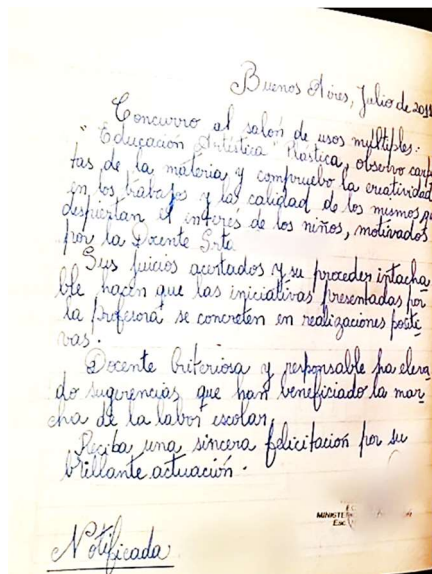 Buenos Aires, Julio de 2011
Concurro al salón de usos múltiples.
"Educación Artística" Plástica, observo carpe
tas de la materia y compruebo la creatividad
en los trabajos y las calidad de los mismos,
despiertan el interés de los niños, motivados
por la Docente Srta
Sus juicios acertados y su proceder intacha
ble hacen que las iniciativas presentadas por
la Profesora se concreten en realizaciones positi
vas.
Docente criteriosa y responsable ha eleva
do sugerencias que han beneficiado la mar
cha de la labor escolar
Reciba una sincera felicitación por su
brillante actuación.
MINISTE
Esc
Notificada